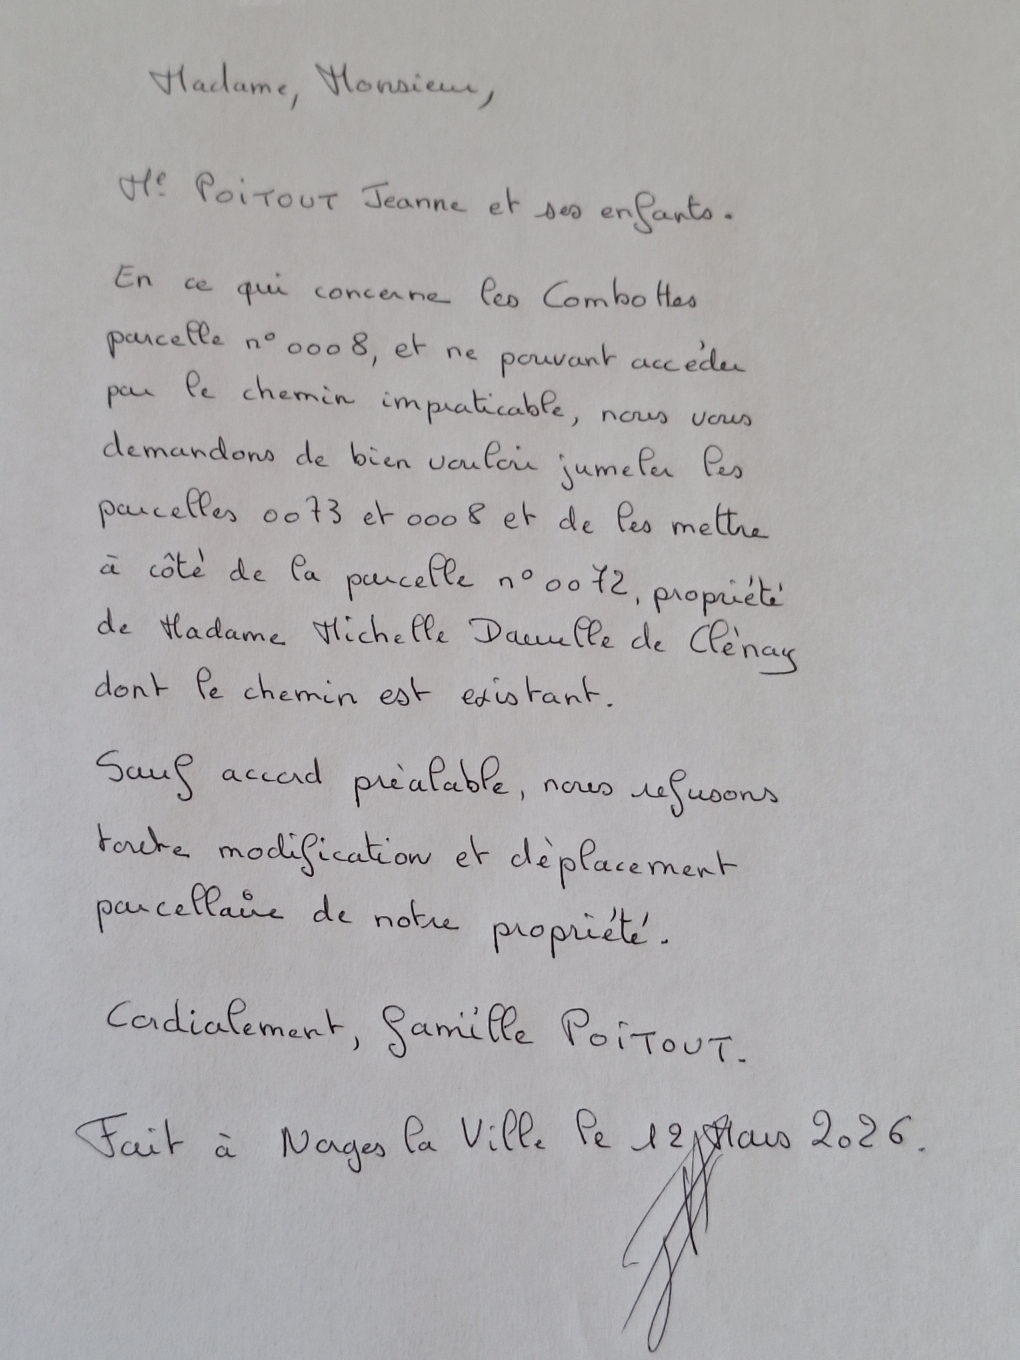 Madame, Monsieur,
Me POiTOUT Jeanne et ses enfants.
En ce qui concerne les Combottes
parcelle n° 0008, et ne pouvant accéder
par le chemin impraticable, nous vous
demandons de bien vouloir jumeler les
parcelles 0073 et 0008 et de les mettre
à côté de la parcelle n° 0072, propriété
de Madame Michelle de Clénay
dont le chemin est existant.
Sauf accord préalable, nous refusons
toute modification et déplacement
parcellaire de notre propriété.
Cordialement, famille POiTOUT.
Fait à la Ville le 12 Mars 2026.